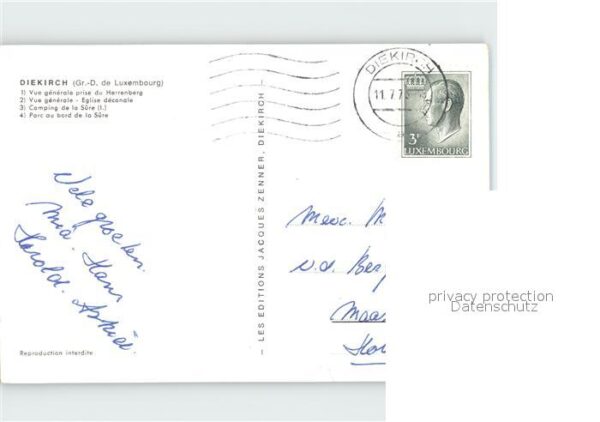 DIEKIRCH (Gr.-D. de Luxembourg)
1) Vue générale prise du Herrenberg
2) Vue générale - Eglise décanale
3) Camping de la Sûre (l.)
4) Parc au bord de la Sûre
DIEKIRCH
11.7.7
3F
LUXEMBOURG
— LES EDITIONS JACQUES ZENNER, DIEKIRCH —
Vele groeten.
Mia. Hans
Harold.
Mevr. M
v.d. Berg
Maas
Reproduction interdite
privacy protection
Datenschutz